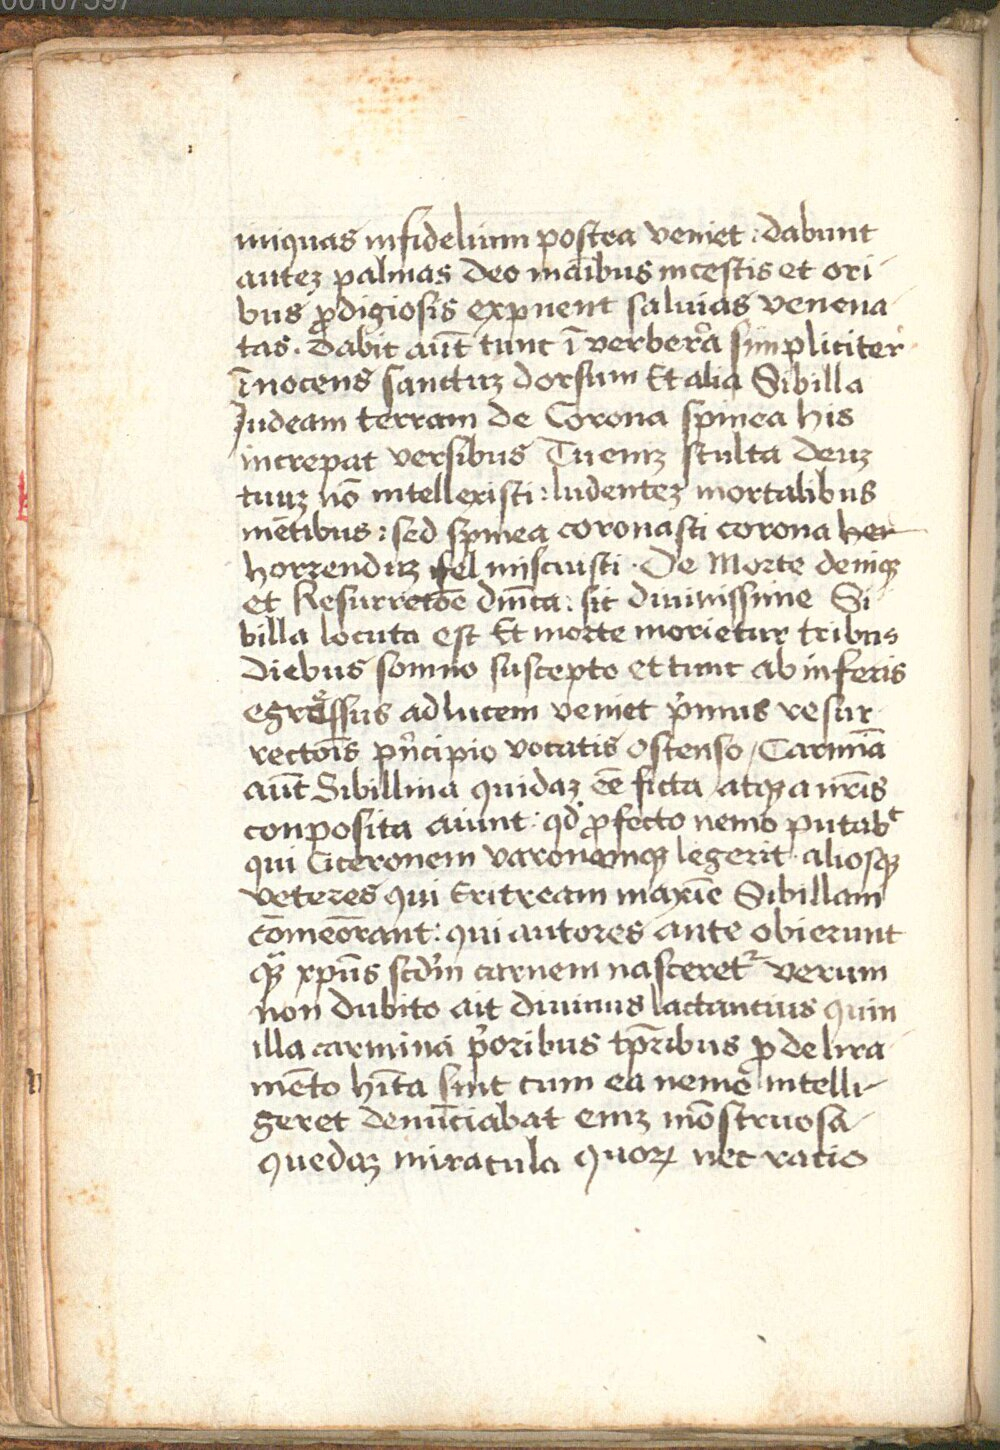 00107597
iniquas infidelium postea veniet : dabunt
autez palmas deo māibus incestis et ori-
bus ꝓdigiosis expuent saluias venena-
tas . dabit aūt tunc ī verbera simpliciter
īnocens sanctuz dorsum Et alia Sibilla
Judeam terram de Corona spinea his
increpat versibus Tu enīz stulta deuz
tuuz nō intellexisti : ludentez mortalibus
mētibus : sed spinea coronasti corona her
horrenduz fel miscuisti . De Morte deniqꝫ
et Resurrectōe dnīca : sic diuinissime Si
billa locuta est Et morte morietur tribus
diebus somno suscepto et tunc ab inferis
egressus ad lucem veniet pͥmus resur-
rectōis pͥncipio vocatis ostenso / Carmīa
aūt Sibillina quidaz eē ficta atqꝫ a nr̄is
conposita aiunt : qd̓ ꝓfecto nemo putabᵗ
qui Ciceronem varonemqꝫ legerit . aliosqꝫ
veteres qui Eritream maxīe Sibillam
cōmeōrant : qui autores ante obierunt
qͣꝫ xp̄us scdm̄ carnem nasceretᷣ verum
non dubito ait diuinus lactancius quin
illa carmina pͥoribus tp̄ribus ꝓ delira-
mēto hīta sint cum ea nemo intelli-
geret denūciabat eniz mōstruosa
quedaz miracula quoꝝ nec ratio